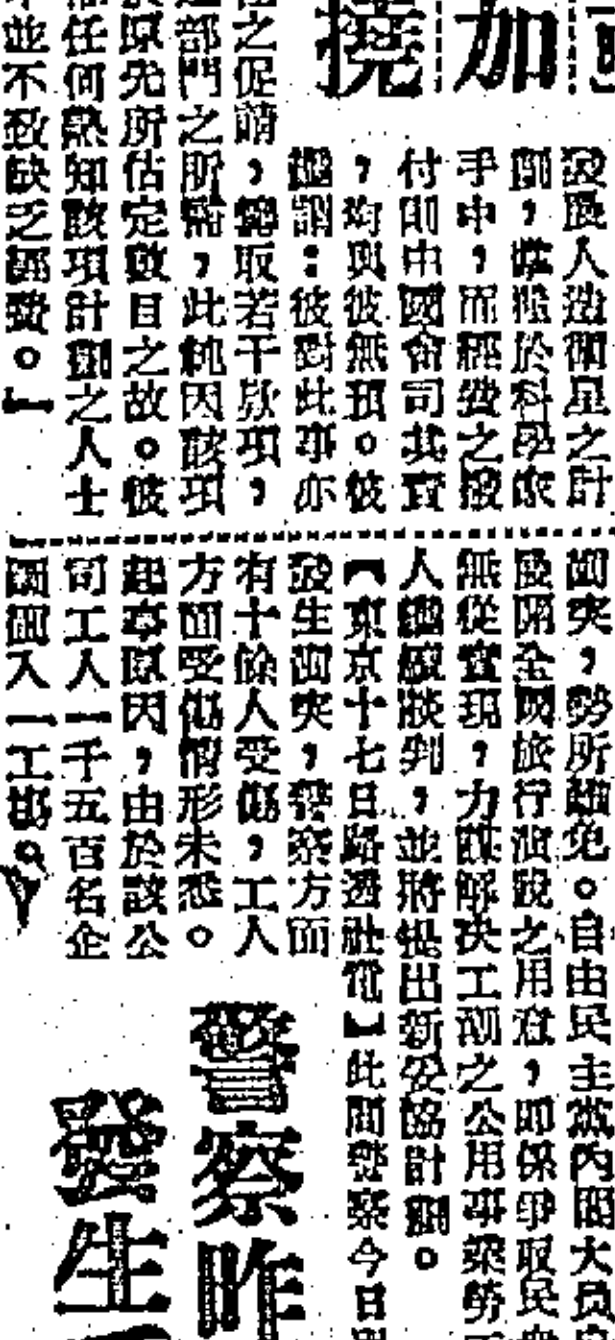 加
撓
發展人造衛星之計
劃，掌握於科學家
手中，而經費之撥
付則由國會司其責
，均與彼無預。彼
繼謂：彼對此事亦
之促請，總取若干款項，
部門之所需，此純因該項
原先所估定數目之故。彼
任何熟知該項計劃之人士
並不致缺乏經費。」
面突，勢所難免。自由民主黨內閣大員
後開全國旅行演說之用意，即係爭取民
無從實現，力謀解決工潮之公用事業勞
人繼續談判，並將提出新妥協計劃。
【東京十七日路透社電】此間警察今日
發生面突，警察方面
有十餘人受傷，工人
方面受傷情形未悉。
起事原因，由於該公
司工人一千五百名企
圖闖入一工場。
警察昨
發生